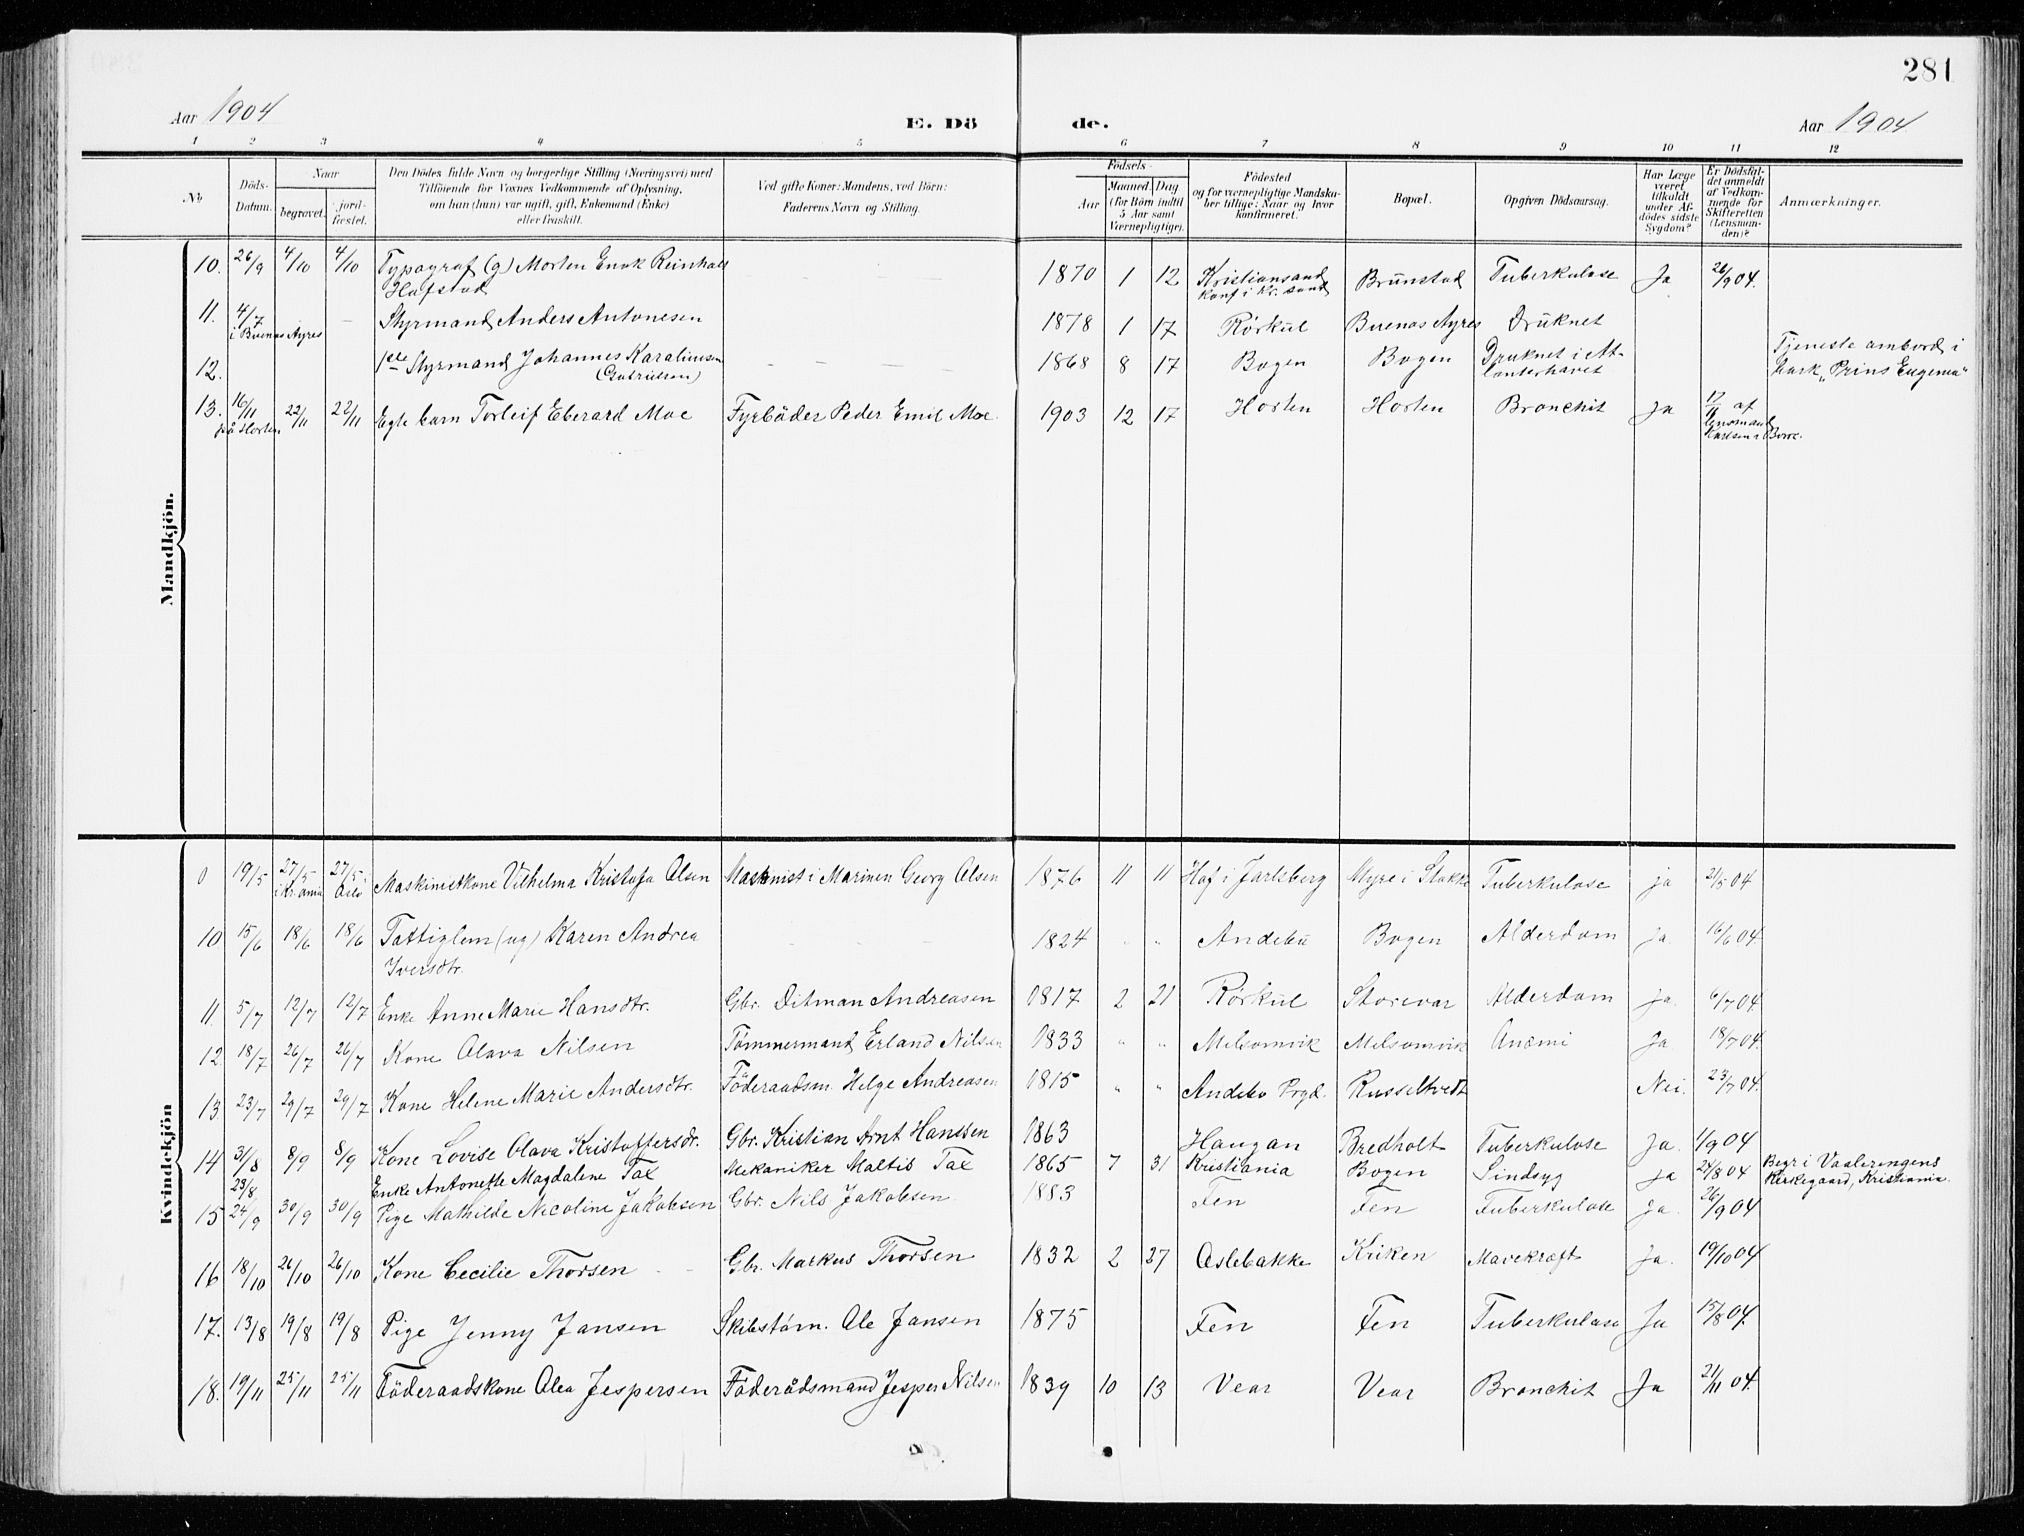 281
Aar 1904 E. Dö de. Aar 1904
1 2 3 4 5 6 7 8 9 10 11 12
No
Döds-Datum.
Naar
begravet.
jord-fæstet.
Den Dödes fulde Navn og borgerlige Stilling (Næringsvei) med
Tilföiende for Voxnes Vedkommende af Oplysning,
om han (hun) var ugift, gift, Enkemand (Enke)
eller fraskilt.
Ved gifte Koner: Mandens, ved Börn:
Faderens Navn og Stilling.
Födsels-
Aar
Maaned. Dag
(for Börn indtil
5 Aar samt
Værnepligtige).
Födested
og for værnepligtige Mandska-
ber tillige: Naar og hvor
konfirmeret.
Bopæl.
Opgiven Dödsaarsag.
Har Læge
været
tilkaldt
under Af-
dödes sidste
Sygdom?
Er Dödsfal-
det anmeldt
af Vedkom-
mende for
Skifteretten
(Lensman-
den)?
Anmærkninger.
Mandkjön.
10. 26/9 4/10 4/10 Typograf (g) Morten Enok Reinhald Hofstad 1870 1 12 Kristiansand Konf i Kr. sand Brunstad Tuberkulose Ja 26/9 04.
11. 4/7 i Buenos Ayres — Styrmand Anders Antonesen 1878 1 17 Rørkul Buenos Ayres Druknet
12. 1ste Styrmand Johannes Karaliussen (Gabrielsen) — — — 1868 8 17 Bogen Bogen Druknet i At-lanterhavet Tjeneste ambord i Bark „Prins Eugenia"
13. 16/11 på Horten 22/11 22/11 Egte barn Torleif Eberard Moe Fyrbøder Peder Emil Moe. 1903 12 17 Horten Horten Bronchit Ja 17/11 af lensmand Karlsen i Borre.
Kvindekjön
9 19/5 27/5 i Kr.ania 27/5 Oslo Maskinistkone Vilhelma Kristofa Olsen Maskinist i Marinen Georg Olsen 1876 11 11 Hof i Jarlsberg Myre i Stokke Tuberkulose ja 21/5 04
10 15/6 18/6 18/6 Fattiglem (ug) Karen Andrea Iversdtr. — — — 1824 " " Andebu Bogen Alderdom Ja 16/6 04.
11. 5/7 12/7 12/7 Enke Anne Marie Hansdtr. Gbr. Ditman Andreasen 1817 2 21 Rørkul Storevar Alderdom ja. 6/7 04.
12 18/7 26/7 26/7 Kone Olava Nilsen Tømmermand Erland Nilsen 1833 " " Melsomvik Melsomvik Anæmi Ja 18/7 04.
13 23/7 29/7 29/7 Kone Helene Marie Andersdtr. Föderaadsm. Helge Andreasen 1815 " " Andebu Prgd. Russeltvedt Nei. 23/7 04.
14 31/8 8/9 8/9 Kone Lovise Olava Kristoffersdr. Gbr. Kristian Arnt Hanssen 1863 Haugan Bredholt Tuberkulose Ja 1/9 04
23/8 Enke Antonette Magdalene Tax Mekaniker Maltis Tax 1865 7 31 Kristiania Bogen Sindsyg ja 24/8 04 Begr i Vaalerengens Kirkegaard, Kristiania.
15 24/9 30/9 30/9 Pige Mathilde Nicoline Jakobsen Gbr. Nils Jakobsen 1883 Fen Fen Tuberkulose Ja. 26/9 04
16 18/10 26/10 26/10 Kone Cecilie Thorsen — — Gbr. Markus Thorsen 1832 2 27 Aslebakke Kriken Mavekræft Ja. 19/10 04
17. 13/8 19/8 19/8 Pige Jenny Jansen Skibstøm. Ole Jansen 1875 Fen Fen Tuberkulose Ja 15/8 04.
18. 19/11 25/11 25/11 Föderaadskone Olea Jespersen Föderådsmand Jesper Nilsen 1839 10 13 Vear Vear Bronchit Ja 21/11 04.